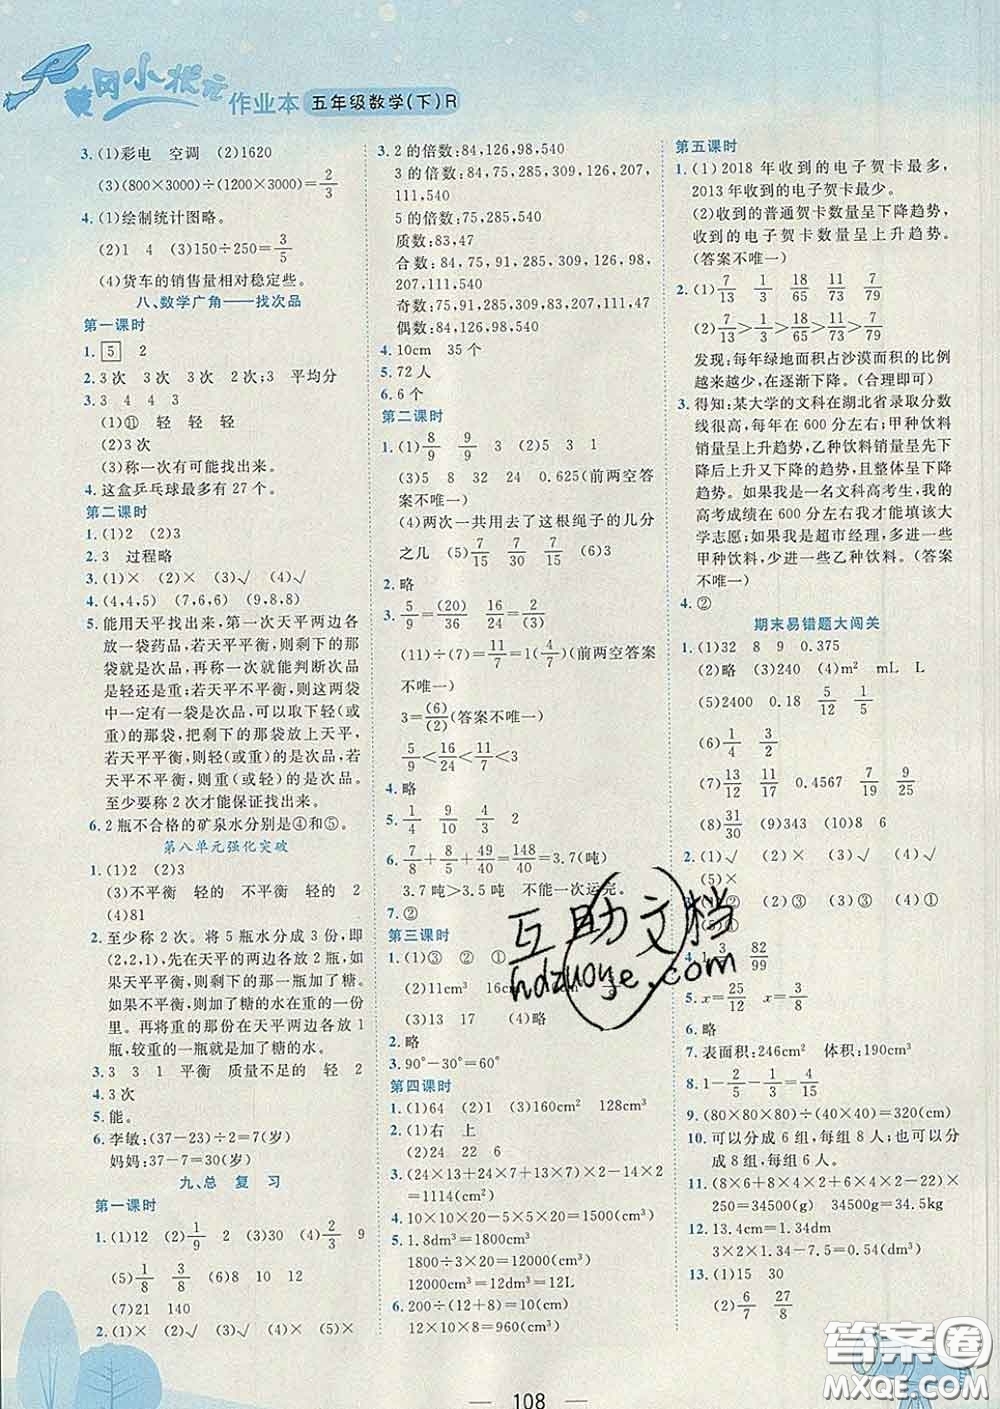 黄冈小状元
作业本 五年级数学(下)R
3.(1)彩电 空调 (2)1620
(3)(800×3000)÷(1200×3000)=2/3
4.(1)绘制统计图略。
(2)1 4 (3)150÷250=3/5
(4)货车的销售量相对稳定些。
八、数学广角——找次品
第一课时
1. 5 2
2.3次 3次 3次 2次;3 平均分
3.3 4 4 3
(1)⑪ 轻 轻 轻
(2)3次
(3)称一次有可能找出来。
4.这盒乒乓球最多有27个。
第二课时
1.(1)2 (2)3
2.3 过程略
3.(1)× (2)× (3)√ (4)√
4.(4,4,5) (7,6,6) (9,8,8)
5.能用天平找出来,第一次天平两边各
放一袋药品,若天平平衡,则剩下的那
袋就是次品,再称一次就能判断次品
是轻还是重;若天平不平衡,则这两袋
中一定有一袋是次品,可以取下轻(或
重)的那袋,把剩下的那袋放上天平,
若天平平衡,则轻(或重)的是次品,若
天平不平衡,则重(或轻)的是次品。
至少要称2次才能保证找出来。
6.2瓶不合格的矿泉水分别是④和⑤。
第八单元强化突破
1.(1)2 (2)3
(3)不平衡 轻的 不平衡 轻的 2
(4)81
2.至少称2次。将5瓶水分成3份,即
(2,2,1),先在天平两边各放2瓶,如
果天平平衡,则剩下的1瓶加了糖;如
果不平衡,则加了糖的水在重的一份
里。再将重的那份在天平两边各放1
瓶,较重的一瓶就是加了糖的水。
3.3 3 1 平衡 质量不足的 轻 2
4.3次
5.能。
6.李敏:(37-23)÷2=7(岁)
妈妈:37-7=30(岁)
九、总 复 习
第一课时
1.(1)12 (2)1/9 2 (3)30 (4)2/3 9
(5)1/8 3/8 (6)> < > =
(7)21 140
2.(1)× (2)√ (3)√ (4)× (5)×
3.2的倍数:84,126,98,540
3的倍数:84,75,285,309,126,207,
111,540
5的倍数:75,285,540
质数:83,47
合数:84,75,91,285,309,126,98,
207,111,540
奇数:75,91,285,83,309,47,207,111
偶数:84,126,98,540
4.10cm 35个
5.72人
6.6个
第二课时
1.(1)8/9 9/9 3 (2)5 3 1
(3)5 8 32 24 0.625(前两空答
案不唯一)
(4)两次一共用去了这根绳子的几分
之几 (5)7/15 7/15 (6)3
2.略
3.5/9=(20)/36 16/24=2/(3)
(11)÷(7)=11/7=1(4/7)(前两空答案
不唯一)
3=(6)/(2)(答案不唯一)
5/9<16/24<11/7<3
4.略
5.1/4 9/10 4/7 2
6.7/8+5/8+49/40=148/40=3.7(吨)
3.7吨>3.5吨 不能一次运完。
7.②
第三课时
1.(1)③ ② ①
(2)11cm³ 16cm
(3)13 17 (4)略
2.略
3.90°-30°=60°
第四课时
1.(1)64 (2)1 (3)160cm² 128cm³
2.(1)右 上
(2)24 22 6
3.(24×13+24×7+13×7)×2-24×2
=1114(cm²)
4.10×10×20-5×5×20=1500(cm³)
5.1.8dm³=1800cm³
1800÷12×80=12000(cm³)
12000cm³=12dm³=12L
6.200÷(12+8)=10(cm)
12×10×8=960(cm³)
第五课时
1.(1)2018年收到的电子贺卡最多,
2013年收到的电子贺卡最少。
(2)收到的普通贺卡数量呈下降趋势,
收到的电子贺卡数量呈上升趋势。
(答案不唯一)
2.(1)7/13 1/3 18/65 11/73 7/79
(2)7/13>1/3>18/65>11/73>7/79
发现:每年绿地面积占沙漠面积的比例
越来越少,在逐渐下降。(合理即可)
3.得知:某大学的文科在湖北省录取分数
线很高,每年在600分左右;甲种饮料
销量呈上升趋势,乙种饮料销量呈先下
降后上升又下降的趋势,且整体呈下降
趋势。如果我是一名文科高考生,我的
高考成绩在600分左右我才能填该大
学志愿;如果我是超市经理,多进一些
甲种饮料,少进一些乙种饮料。(答案
不唯一)
4.②
期末易错题大闯关
1.(1)32 8 9 0.375
(2)略 (3)240 (4)m² mL L
(5)2400 0.18 5/12 1/5
(6)1/4 3/2
(7)13/12 17/12 0.4567 7/20 9/25
(8)31/30 (9)120 (10)48
2.(1)√ (2)× (3)√ (4)√
(5)×
3. ④ (3)④ (4)①
4. 3/3 82/99
5.x=25/12 x=3/10
6.略
7.表面积:246cm² 体积:190cm³
8.1-2/5-1/3=4/15
9.(80×80×80)÷(40×40)=320(cm)
10.可以分成6组,每组8人;也可以分
成8组,每组6人。
11.(8×6+8×4×2+6×4×2-22)×
250=34500(g) 34500g=34.5kg
12.13.4cm=1.34dm
3×2×1.34-7.5=0.54(dm³)
13.(1)15 30
(2)6/7 27/8
互助文档
hdzuoye.com
108
答案圈
MXQE.COM